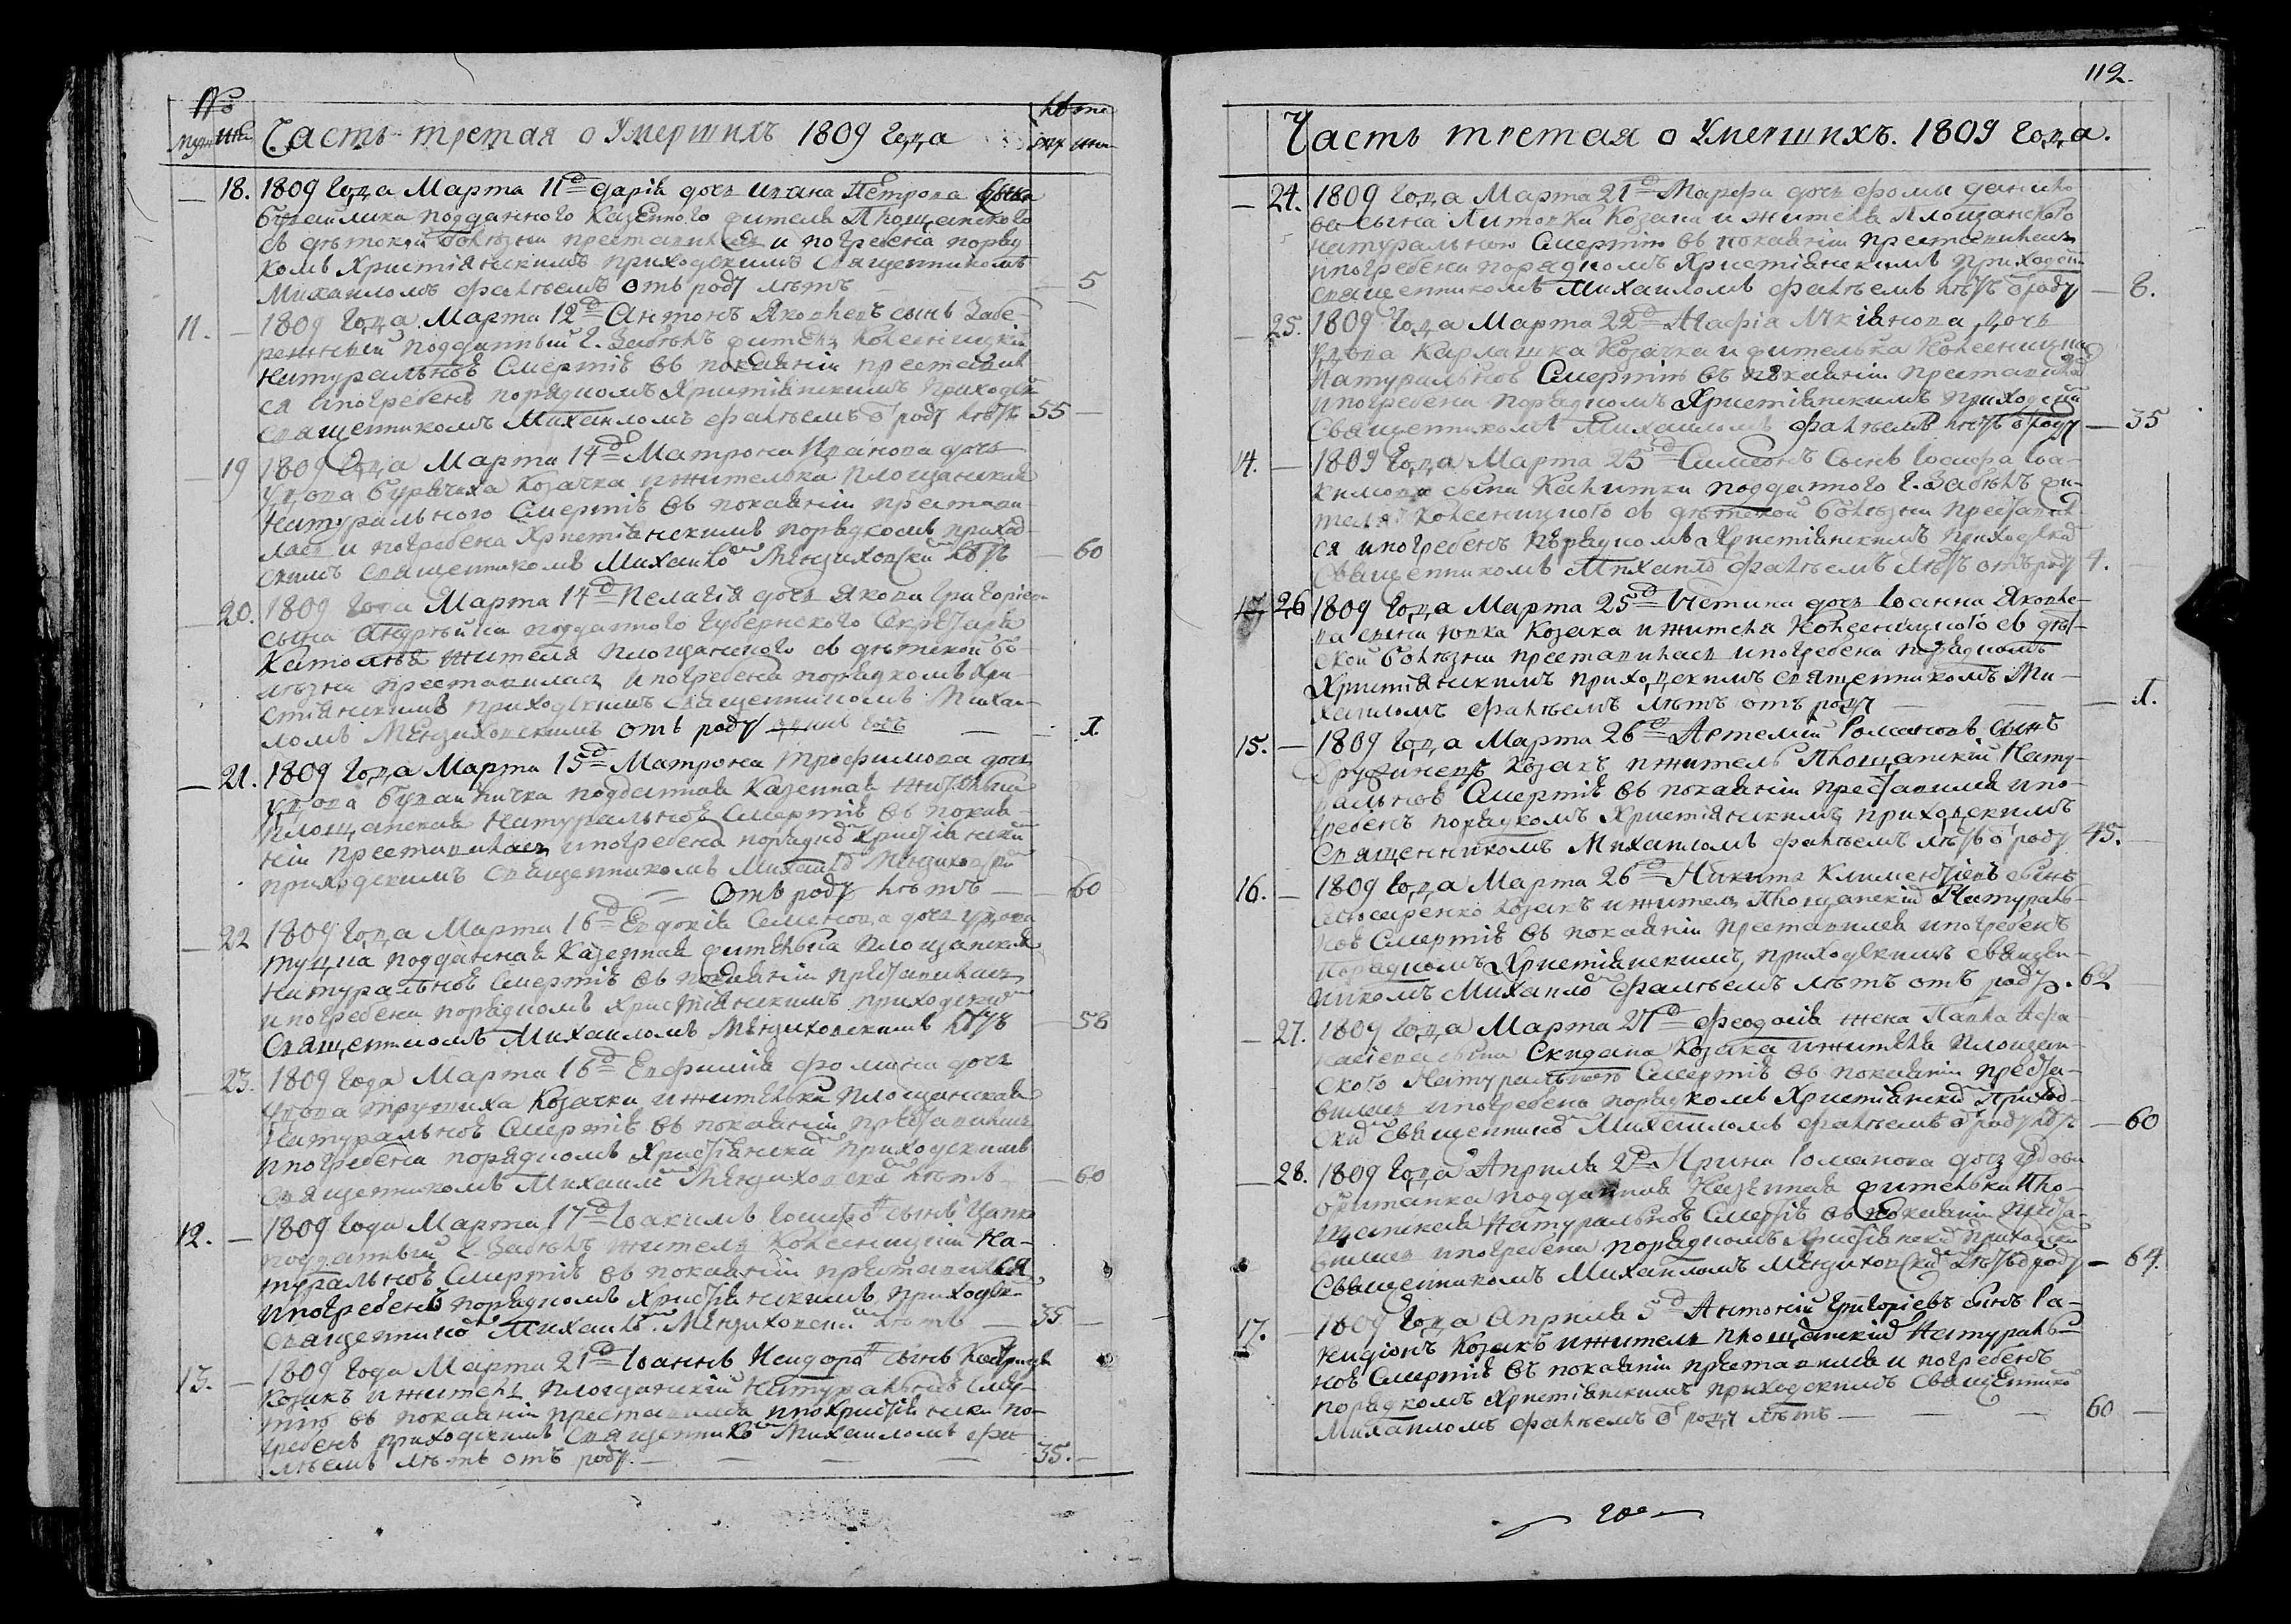 №
мужс женс Часть третая о Умершихъ 1809 года
лѣта
муж жен
18. 1809 года Марта 11д Дарія дочь Ивана Петрова сына
подданного Казенного жителя Площанского
въ дѣтской болѣзни преставилась и погребена поряд
комъ Христіянскимъ приходскимъ священникомъ
Михаиломъ Фалѣемъ отъ роду лѣтъ 5
11. 1809 года Марта 12д Антонъ Яковлевъ сынъ
подданный Г. Забѣлъ житель
натуралною Смертію въ покаяніи престави
ся и погребенъ порядкомъ Христіянскимъ приходск
священникомъ Михаиломъ Фалѣемъ о роду лѣтъ 55
19 1809 года Марта 14д Матрона Иванова дочь
удова Козачка и жителка Площанская
Натуралного Смертію въ покаяніи престави
лась и погребена Христіянскимъ порядкомъ приход
скимъ священникомъ Михаило Мензиховски лѣтъ 60
20. 1809 года Марта 14д Пелагія дочь Якова Григоріев
сына Андрѣйка подданного Губернского Секретаря
жителя Площанского въ дѣтской бо
лѣзни преставилась и погребена порядкомъ Хри
стіянскимъ приходскимъ священникомъ Михаи
ломъ Мензиховскимъ отъ роду одинъ годъ 1
21. 1809 года Марта 15д Матрона Трофимова дочь
удова подданная Казенная жителка
Площанская Натуралною Смертію въ покая
ніи преставилась и погребена порядко Христіянски
приходскимъ священникомъ Михаило Мензиховски
Отъ роду лѣтъ 60
22 1809 года Марта 16д Евдокія Семенова дочь удова
подданная Казенная жителка Площанская
натуралною Смертію въ покаяніи преставилась
и погребена порядкомъ Христіянскимъ приходским
Священникомъ Михаиломъ Мензиховскимъ лѣтъ 58
23. 1809 года Марта 16д Евфимія Фомина дочь
удова Козачка и жителка Площанская
Натуралною Смертію въ покаяніи преставилась
и погребена порядкомъ Христіянски приходскимъ
священникомъ Михаил Мензиховски лѣтъ 60
12. 1809 года Марта 17д Іоакимъ Іосифо сынъ Цапко
подданный Г. Забѣлъ житель На
туралною Смертію въ покаяніи преставился
и погребенъ порядкомъ Христіянскимъ приходск
священнико Михаил Мензиховски лѣтъ 35
13. 1809 года Марта 21д Іоаннъ Исидоро сынъ
Козакъ и житель Площанскій Натуралною Смер
тію въ покаяніи преставился и по Христіянски по
гребенъ приходскимъ Священнико Михаиломъ Фа
лѣемъ лѣтъ отъ роду. 35.
112.
Часть третая о Умершихъ. 1809 года.
24. 1809 года Марта 21д Марфа дочь Фомы Данило
ва сына Литовки Козака и жителя Площанского
натуралною Смертію въ покаяніи преставилась
и погребена порядкомъ Христіянскимъ приходски
священникомъ Михаиломъ Фалѣемъ лѣтъ о роду 8.
25. 1809 года Марта 22д Агафія Лукіянова дочь
удова Козачка и жителка
Натуралною Смертію въ покаяніи преставилась
и погребена порядкомъ Христіянскимъ приходски
Священникомъ Михаиломъ Фалѣемъ лѣтъ о роду 35
14. 1809 года Марта 23д Симеонъ Сынъ Іосифа Іоа
кимова сына Калитки подданного Г. Забѣлъ жи
теля въ дѣтской болѣзни преставил
ся и погребенъ порядкомъ Христіянскимъ приходска
Священникомъ Михаило Фалѣемъ лѣтъ отъ роду 4.
26 1809 года Марта 25д дочь Іоанна Яковле
ва сына Козака и жителя въ дѣт
ской болѣзни преставилась и погребена порядкомъ
Христіянскимъ приходскимъ священникомъ Ми
хаиломъ Фалѣемъ лѣтъ отъ роду 1.
15. 1809 года Марта 26д Артемій Романовъ сынъ
Козакъ и житель Площанскій Нату
ралною Смертію въ покаяніи преставился и по
гребенъ порядкомъ Христіянскимъ приходскимъ
Священникомъ Михаиломъ Фалѣемъ лѣтъ о роду 45.
16. 1809 года Марта 26д Никита Климентіевъ сынъ
Козакъ и житель Площанскій Натурал
ною Смертію въ покаяніи преставился и погребенъ
Порядкомъ Христіянскимъ, приходскимъ священ
никомъ Михаило Фалѣемъ лѣтъ отъ роду. 62
27. 1809 года Марта 27д Феодосія жена Павла Афа
насіева сына Скидана Козака и жителя Площан
ского Натуралною Смертію въ покаяніи преста
вилась и погребена порядкомъ Христіянски Приход
ски Священнико Михаиломъ Фалѣемъ о роду лѣтъ 60
28. 1809 года Априля 2д Ирина Романова дочь удова
подданная Казенная жителка Пло
щанская Натуралною Смертію въ покаяніи преста
вилась и погребена порядкомъ Христіянски приходски
Священникомъ Михаиломъ Мензиховски лѣтъ о роду 64.
17. 1809 года Априля 5д Антоній Григоріевъ сынъ
Козакъ и житель Площанскій Натурал
ною Смертію въ покаяніи преставился и погребенъ
порядкомъ Христіянскимъ приходскимъ Священнико
Михаиломъ Фалѣемъ о роду лѣтъ 60